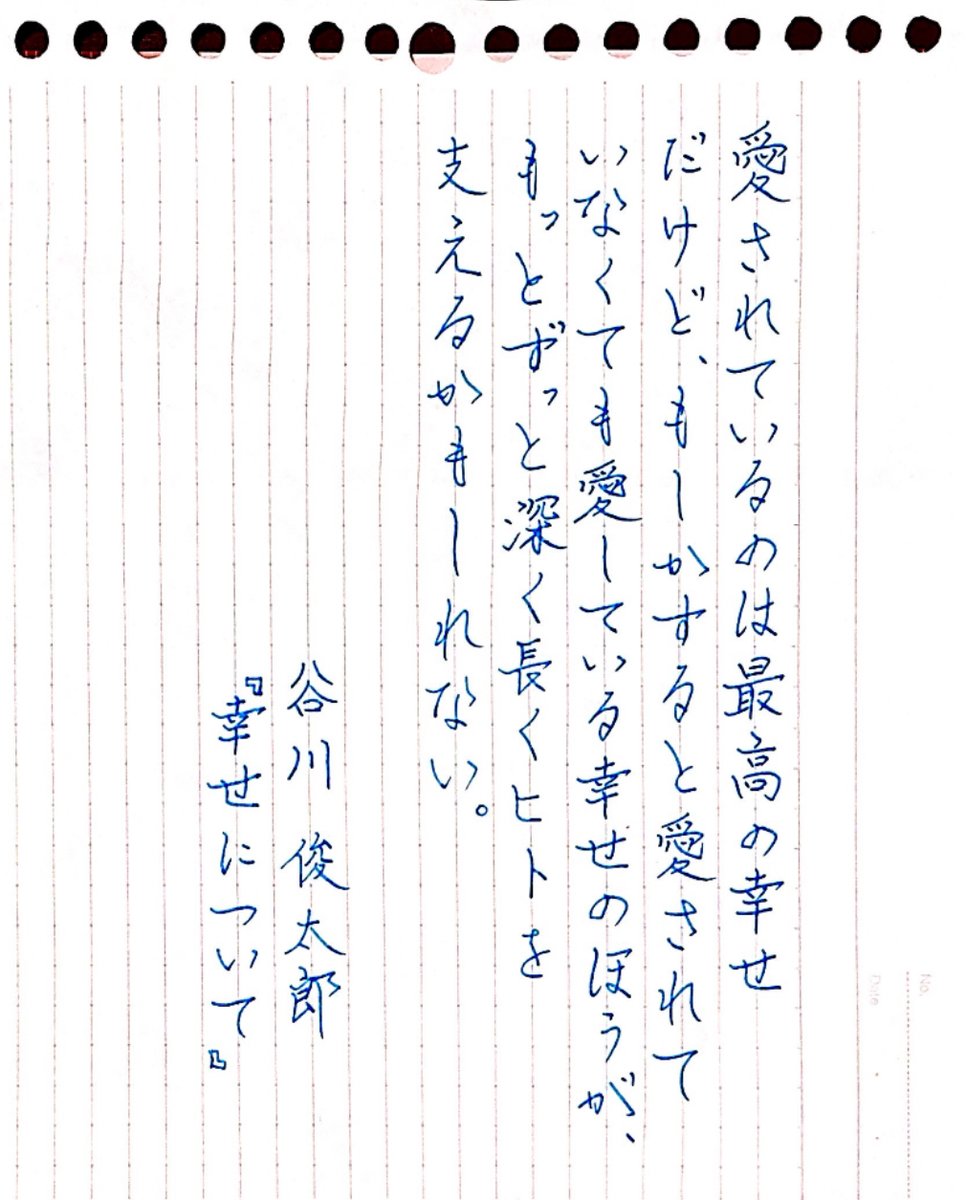 愛されているのは最高の幸せ
だけど、もしかすると愛されて
いなくても愛している幸せのほうが、
もっとずっと深く長くヒトを
支えるかもしれない。
谷川 俊太郎
『幸せについて』
No.
Date